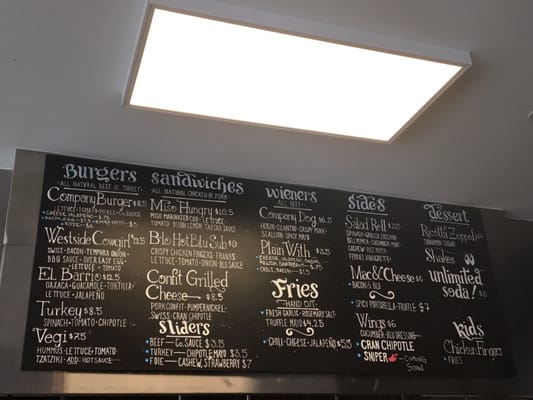 Burgers
ALL NATURAL BEEF & TURKEY
Company Burger $8.5
LETTUCE · TOMATO · PICKLE · CO. SAUCE
Westside Cowgirl $12.5
SWISS · BACON · TEMPURA ONION
BBQ SAUCE · OVER EASY EGG
LETTUCE · TOMATO
El Barrio $12.5
OAXACA · GUACAMOLE · TORTILLA
LETTUCE · JALAPEÑO
Turkey $8.5
SPINACH · TOMATO · CHIPOTLE
Vegi $7.5
HUMMUS · LETTUCE · TOMATO
TZATZIKI · ADD: HOT SAUCE
Sandwiches
ALL NATURAL CHICKEN & PORK
Miso Hungry $10.5
MISO MARINATED COD · LETTUCE
TOMATO · DIJON LEMON TARTAR
Blo Hot Blu Sub $9
CRISPY CHICKEN FINGERS · FRANKS
LETTUCE · TOMATO · ONION · BLU SAUCE
Confit Grilled
Cheese — $8.5
PORK CONFIT · PUMPERNICKEL
SWISS · CRAN CHIPOTLE
Sliders
BEEF — CO. SAUCE $3.5
TURKEY — CHIPOTLE MAYO $3.5
FOIE — CASHEW, STRAWBERRY $7
Wieners
ALL BEEF
Company Dog $6.5
HOISIN · CILANTRO · CRISPY PORK
SCALLION · SPICY MAYO
Plain With $3.5
CHILI, BACON $1.5
Fries
HAND CUT
FRESH GARLIC · ROSEMARY SALT
TRUFFLE MAYO $4.5
CHILI · CHEESE · JALAPEÑO $5.5
Sides
Salad Roll
BELL PEPPER, CUCUMBER, MINT
CASHEW, RICE PAPER
Mac & Cheese $6
BACON & BLU
SPICY PORTOBELLO · TRUFFLE $7
Wings $6
CUCUMBER · BLU DRESSING
CRAN CHIPOTLE
SNIPER — COMING
SOON
Dessert
Ricotta Zeppoli
CINNAMON SUGAR
Shakes
unlimited
soda!
Kids
Chicken Fingers
FRIES